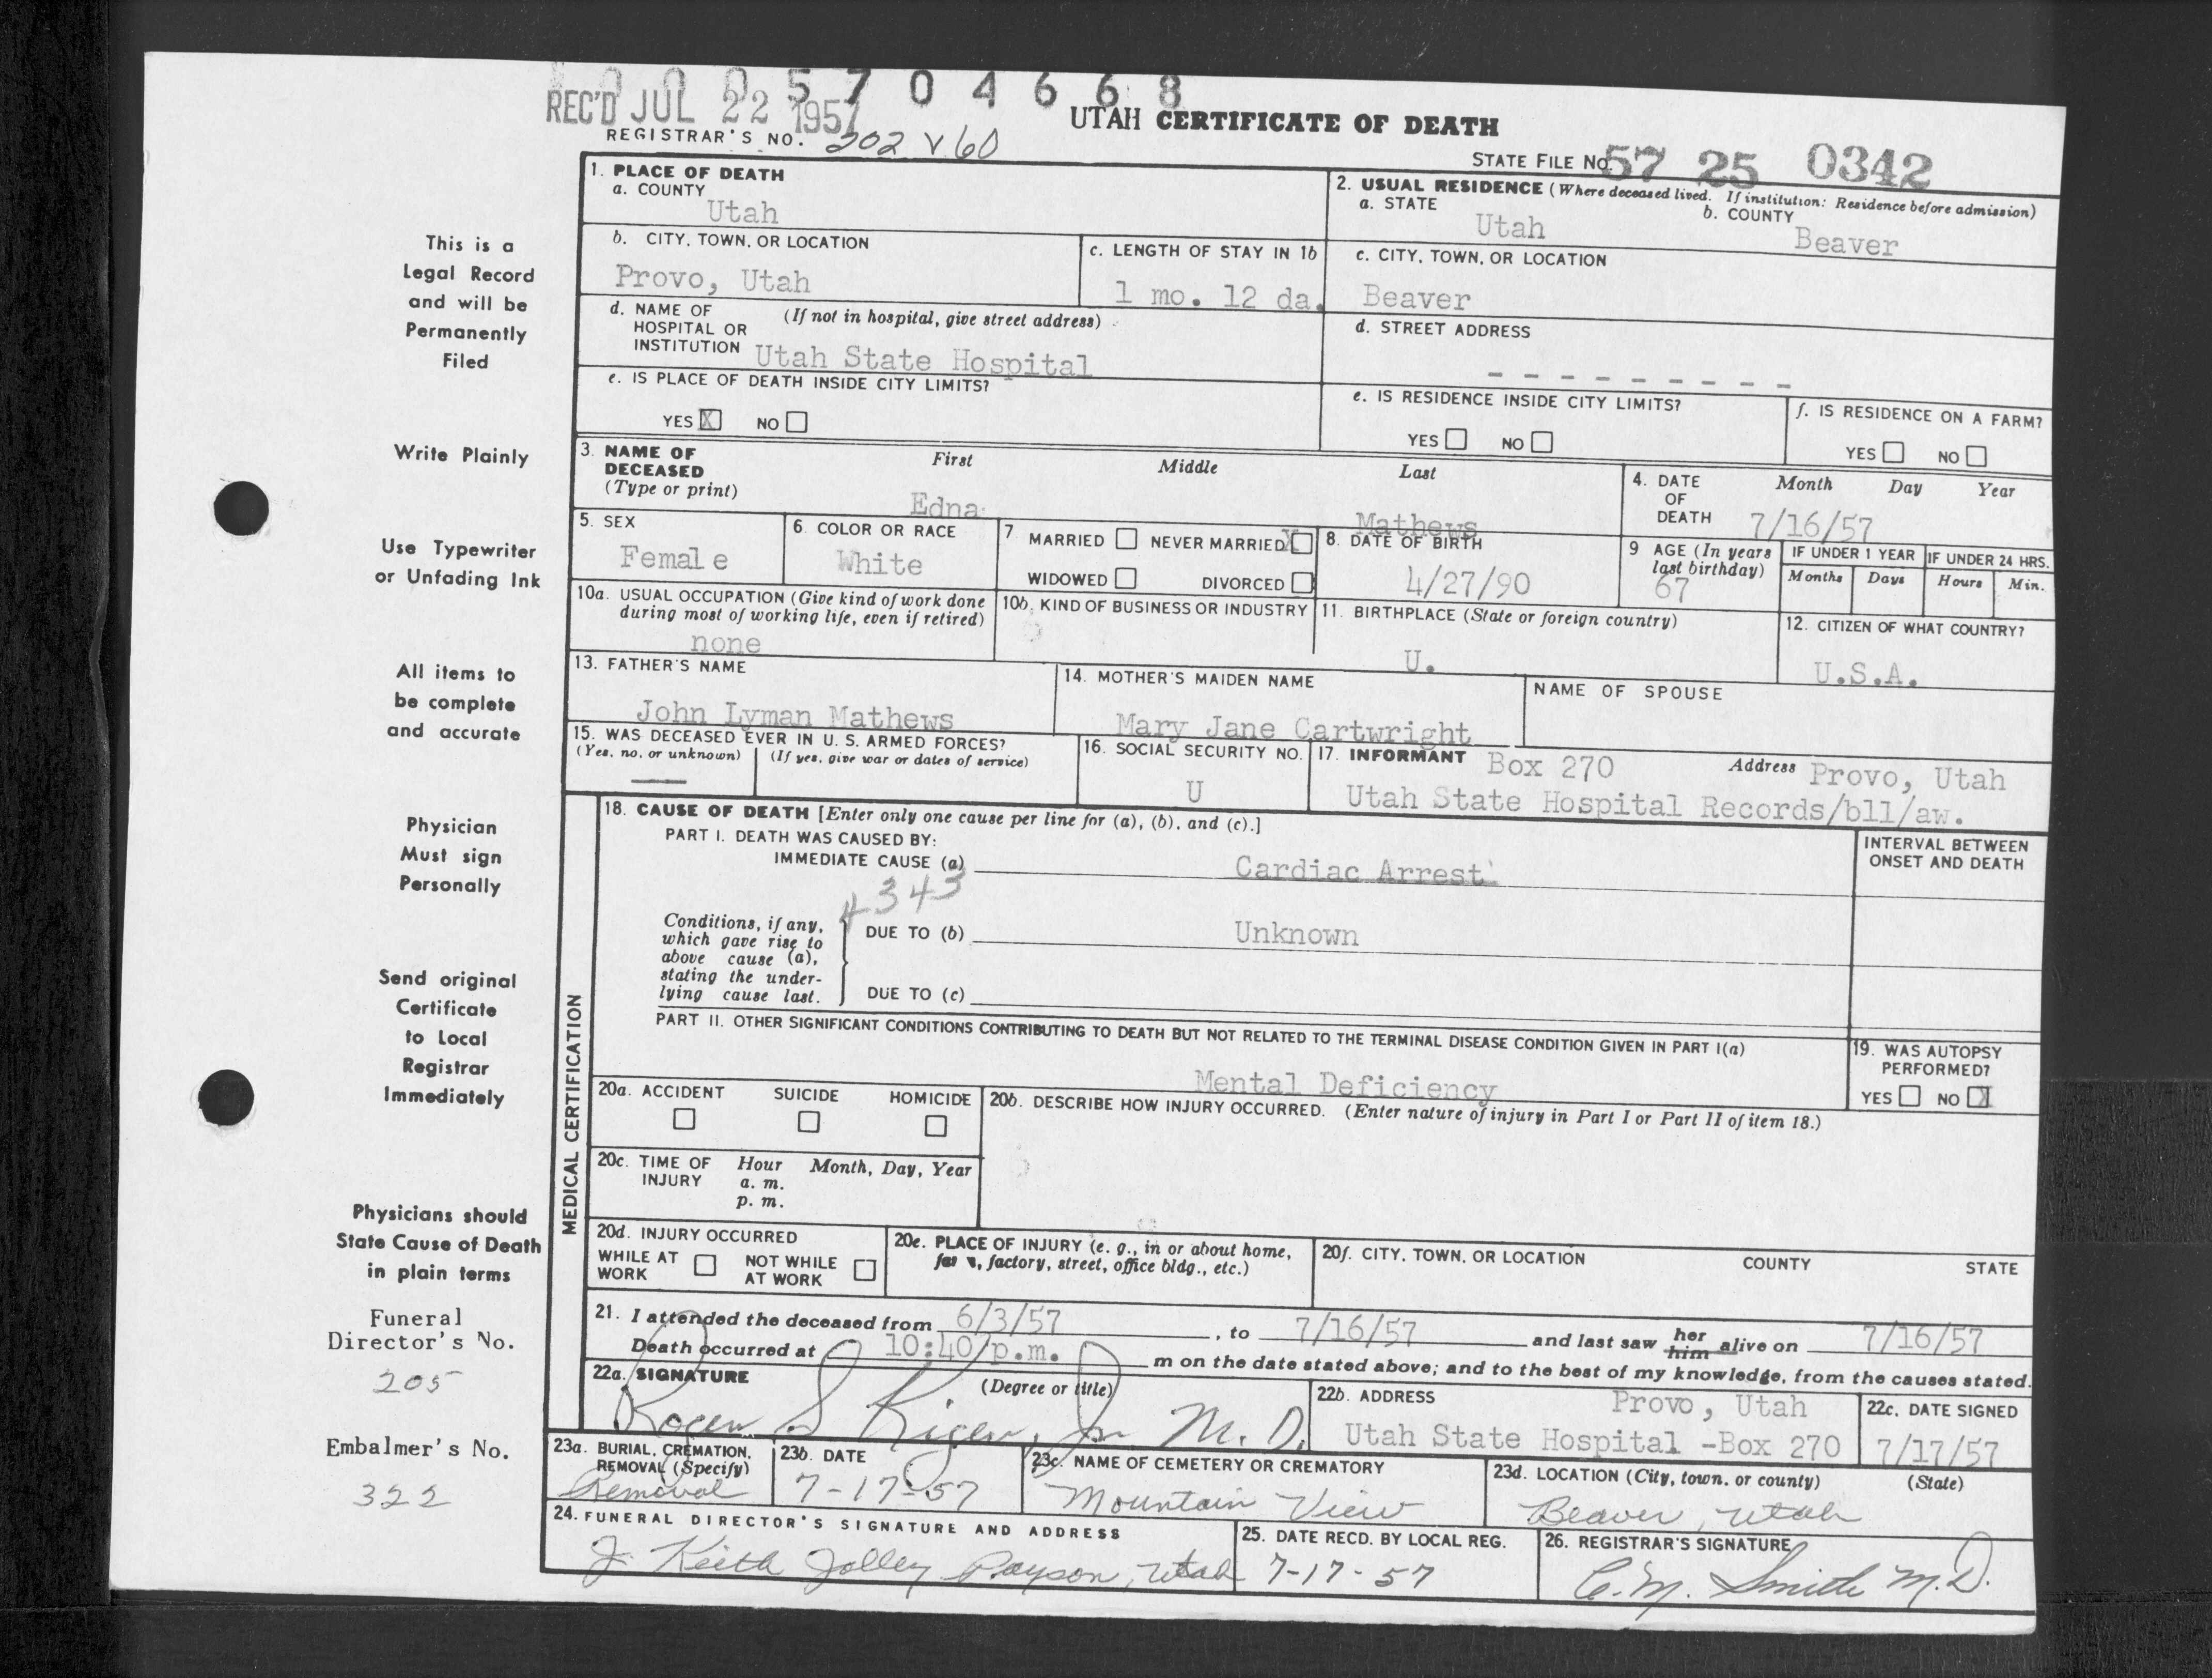 0 0 0 5 7 0 4 6 6 8
REC'D JUL 22 1957
UTAH CERTIFICATE OF DEATH
REGISTRAR'S NO. 202 V 60
STATE FILE NO. 57 25 0342
This is a
Legal Record
and will be
Permanently
Filed
Write Plainly
Use Typewriter
or Unfading Ink
All items to
be complete
and accurate
Physician
Must sign
Personally
Send original
Certificate
to Local
Registrar
Immediately
Physicians should
State Cause of Death
in plain terms
Funeral
Director's No.
205
Embalmer's No.
322
1. PLACE OF DEATH
a. COUNTY
Utah
2. USUAL RESIDENCE (Where deceased lived. If institution: Residence before admission)
a. STATE
Utah
b. COUNTY
Beaver
b. CITY, TOWN, OR LOCATION
Provo, Utah
c. LENGTH OF STAY IN 1b
1 mo. 12 da.
c. CITY, TOWN, OR LOCATION
Beaver
d. NAME OF (If not in hospital, give street address)
HOSPITAL OR
INSTITUTION Utah State Hospital
d. STREET ADDRESS
- - - - - - - - -
e. IS PLACE OF DEATH INSIDE CITY LIMITS?
YES X NO
e. IS RESIDENCE INSIDE CITY LIMITS?
YES NO
f. IS RESIDENCE ON A FARM?
YES NO
3. NAME OF
DECEASED
(Type or print)
First Middle Last
Edna Mathews
4. DATE
OF
DEATH
Month Day Year
7/16/57
5. SEX
Female
6. COLOR OR RACE
White
7. MARRIED NEVER MARRIED X
WIDOWED DIVORCED
8. DATE OF BIRTH
4/27/90
9. AGE (In years
last birthday)
67
IF UNDER 1 YEAR
Months Days
IF UNDER 24 HRS.
Hours Min.
10a. USUAL OCCUPATION (Give kind of work done
during most of working life, even if retired)
none
10b. KIND OF BUSINESS OR INDUSTRY
11. BIRTHPLACE (State or foreign country)
U.
12. CITIZEN OF WHAT COUNTRY?
U.S.A.
13. FATHER'S NAME
John Lyman Mathews
14. MOTHER'S MAIDEN NAME
Mary Jane Cartwright
NAME OF SPOUSE
15. WAS DECEASED EVER IN U. S. ARMED FORCES?
(Yes, no, or unknown) (If yes, give war or dates of service)
—
16. SOCIAL SECURITY NO.
U
17. INFORMANT Box 270 Address Provo, Utah
Utah State Hospital Records/bll/aw.
MEDICAL CERTIFICATION
18. CAUSE OF DEATH [Enter only one cause per line for (a), (b), and (c).]
PART I. DEATH WAS CAUSED BY:
IMMEDIATE CAUSE (a) Cardiac Arrest
INTERVAL BETWEEN
ONSET AND DEATH
4343
Conditions, if any,
which gave rise to
above cause (a),
stating the under-
lying cause last.
DUE TO (b) Unknown
DUE TO (c)
PART II. OTHER SIGNIFICANT CONDITIONS CONTRIBUTING TO DEATH BUT NOT RELATED TO THE TERMINAL DISEASE CONDITION GIVEN IN PART I(a)
Mental Deficiency
19. WAS AUTOPSY
PERFORMED?
YES NO X
20a. ACCIDENT SUICIDE HOMICIDE
20b. DESCRIBE HOW INJURY OCCURRED. (Enter nature of injury in Part I or Part II of item 18.)
20c. TIME OF
INJURY
Hour Month, Day, Year
a. m.
p. m.
20d. INJURY OCCURRED
WHILE AT
WORK
NOT WHILE
AT WORK
20e. PLACE OF INJURY (e. g., in or about home,
factory, street, office bldg., etc.)
20f. CITY, TOWN, OR LOCATION COUNTY STATE
21. I attended the deceased from 6/3/57, to 7/16/57 and last saw her him alive on 7/16/57
Death occurred at 10:40/p.m. m on the date stated above; and to the best of my knowledge, from the causes stated.
22a. SIGNATURE (Degree or title)
S. Jr. M. D.
22b. ADDRESS
Provo, Utah
Utah State Hospital -Box 270
22c. DATE SIGNED
7/17/57
23a. BURIAL, CREMATION,
REMOVAL (Specify)
Removal
23b. DATE
7-17-57
23c. NAME OF CEMETERY OR CREMATORY
Mountain View
23d. LOCATION (City, town, or county) (State)
Beaver, Utah
24. FUNERAL DIRECTOR'S SIGNATURE AND ADDRESS
J. Keith Jolley Payson, Utah
25. DATE RECD. BY LOCAL REG.
7-17-57
26. REGISTRAR'S SIGNATURE
C.M. Smith M.D.